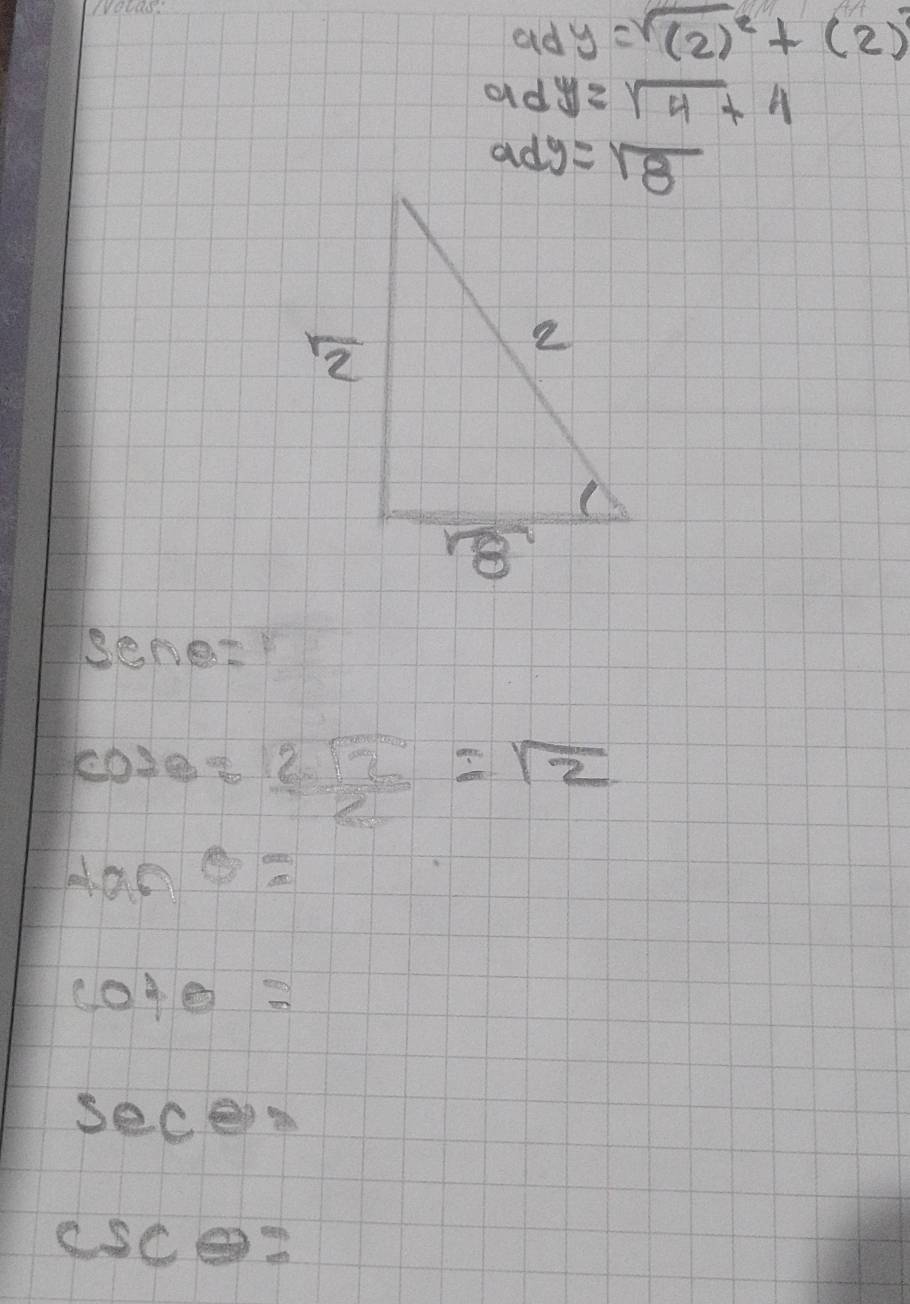 Notas:
ady = √(2)² + (2)²
ady = √4 + 4
ady = √8
√2
2
√8
senθ =
cosθ = 2√2/2 = √2
tan θ =
cotθ =
secθ =
cscθ =